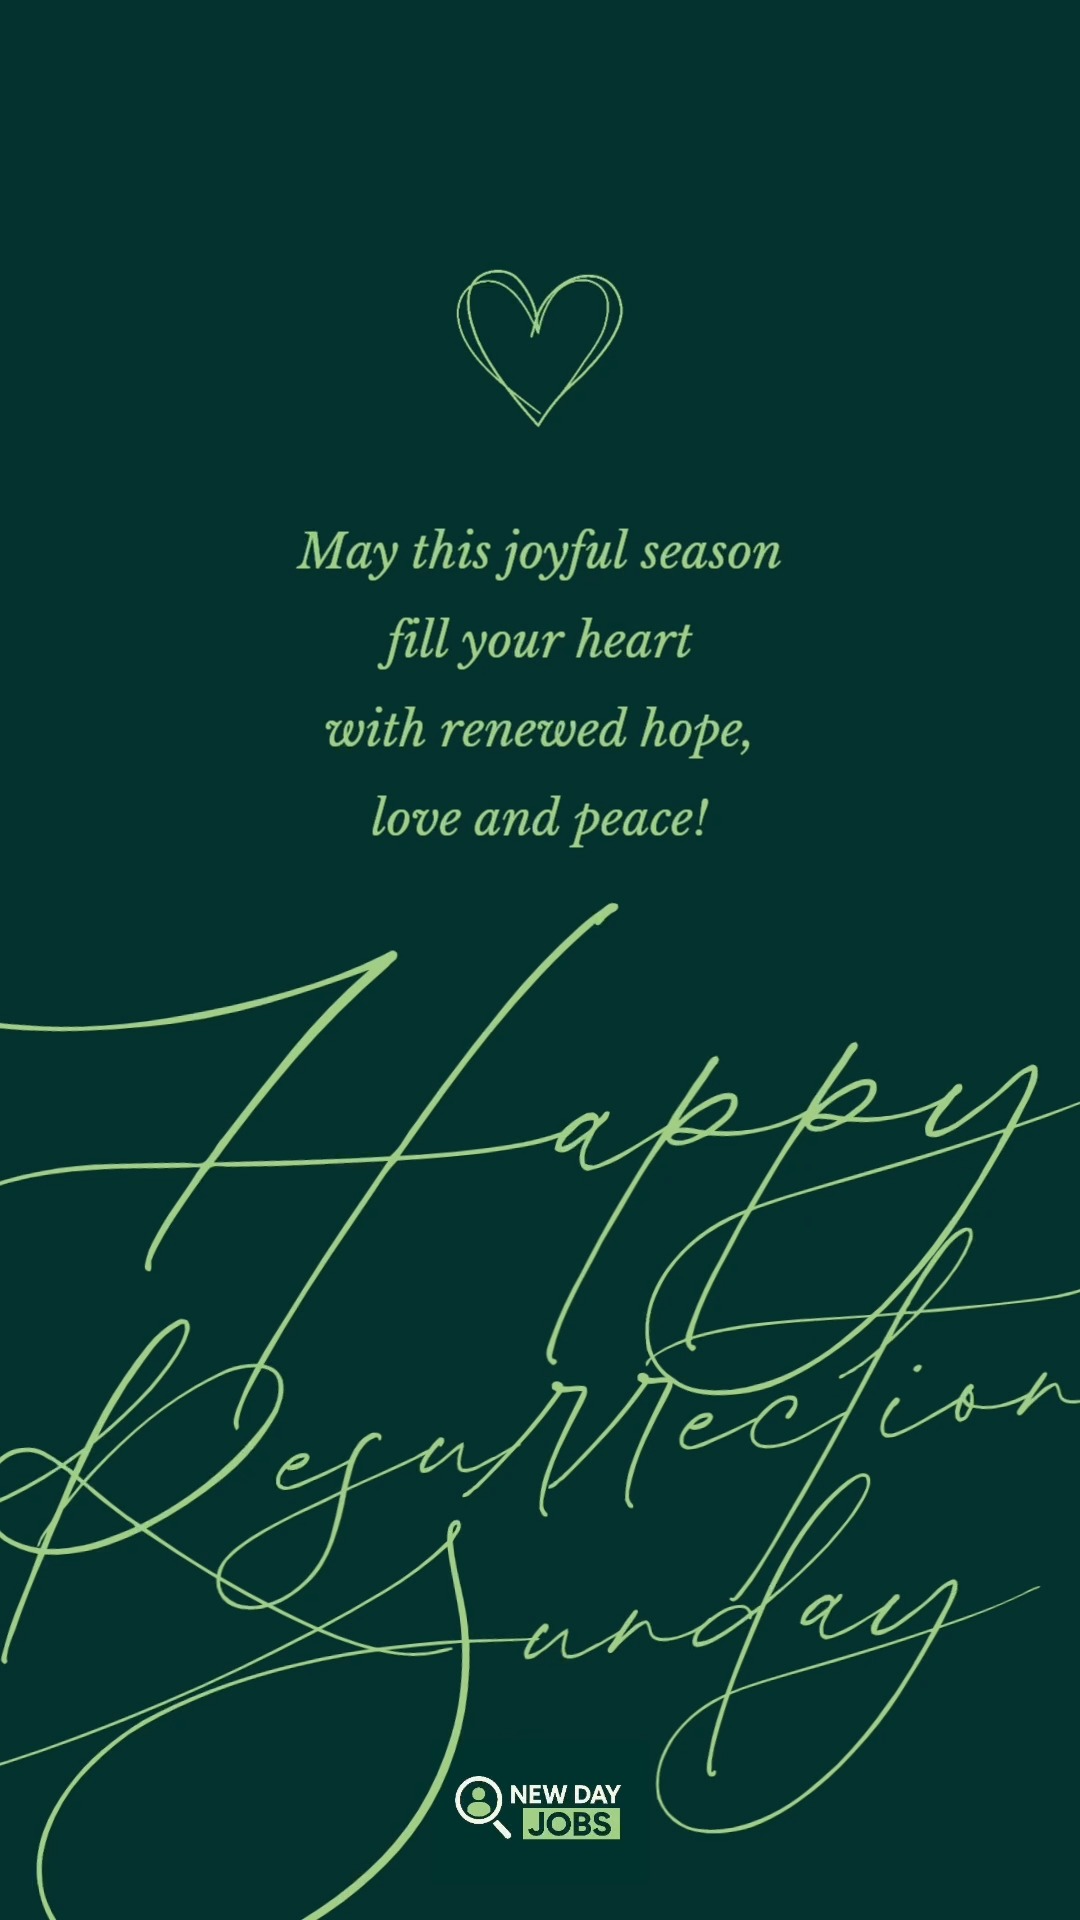 May this joyful season
fill your heart
with renewed hope,
love and peace!
Happy
Resurrection
Sunday
NEW DAY
JOBS